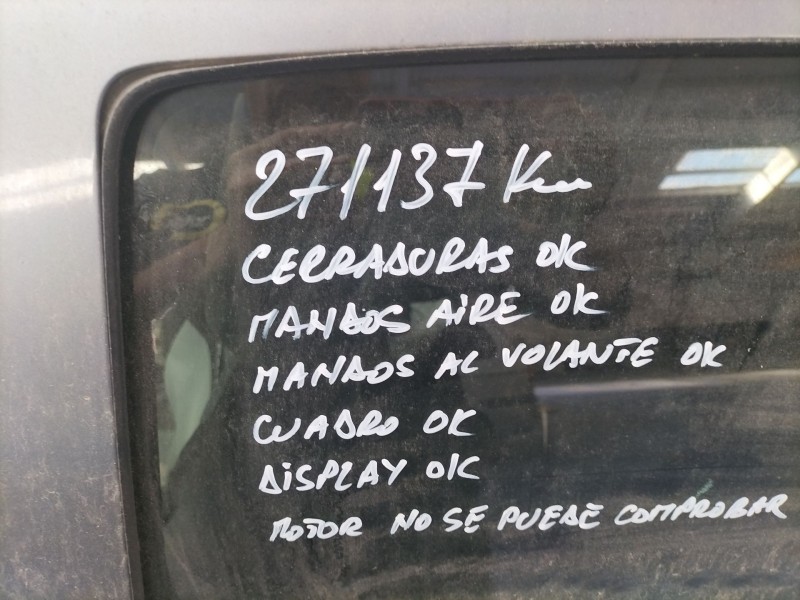 271137 Km
CERRADURAS OK
MANDOS AIRE OK
MANDOS AL VOLANTE OK
CUADRO OK
DISPLAY OK
MOTOR NO SE PUEDE COMPROBAR